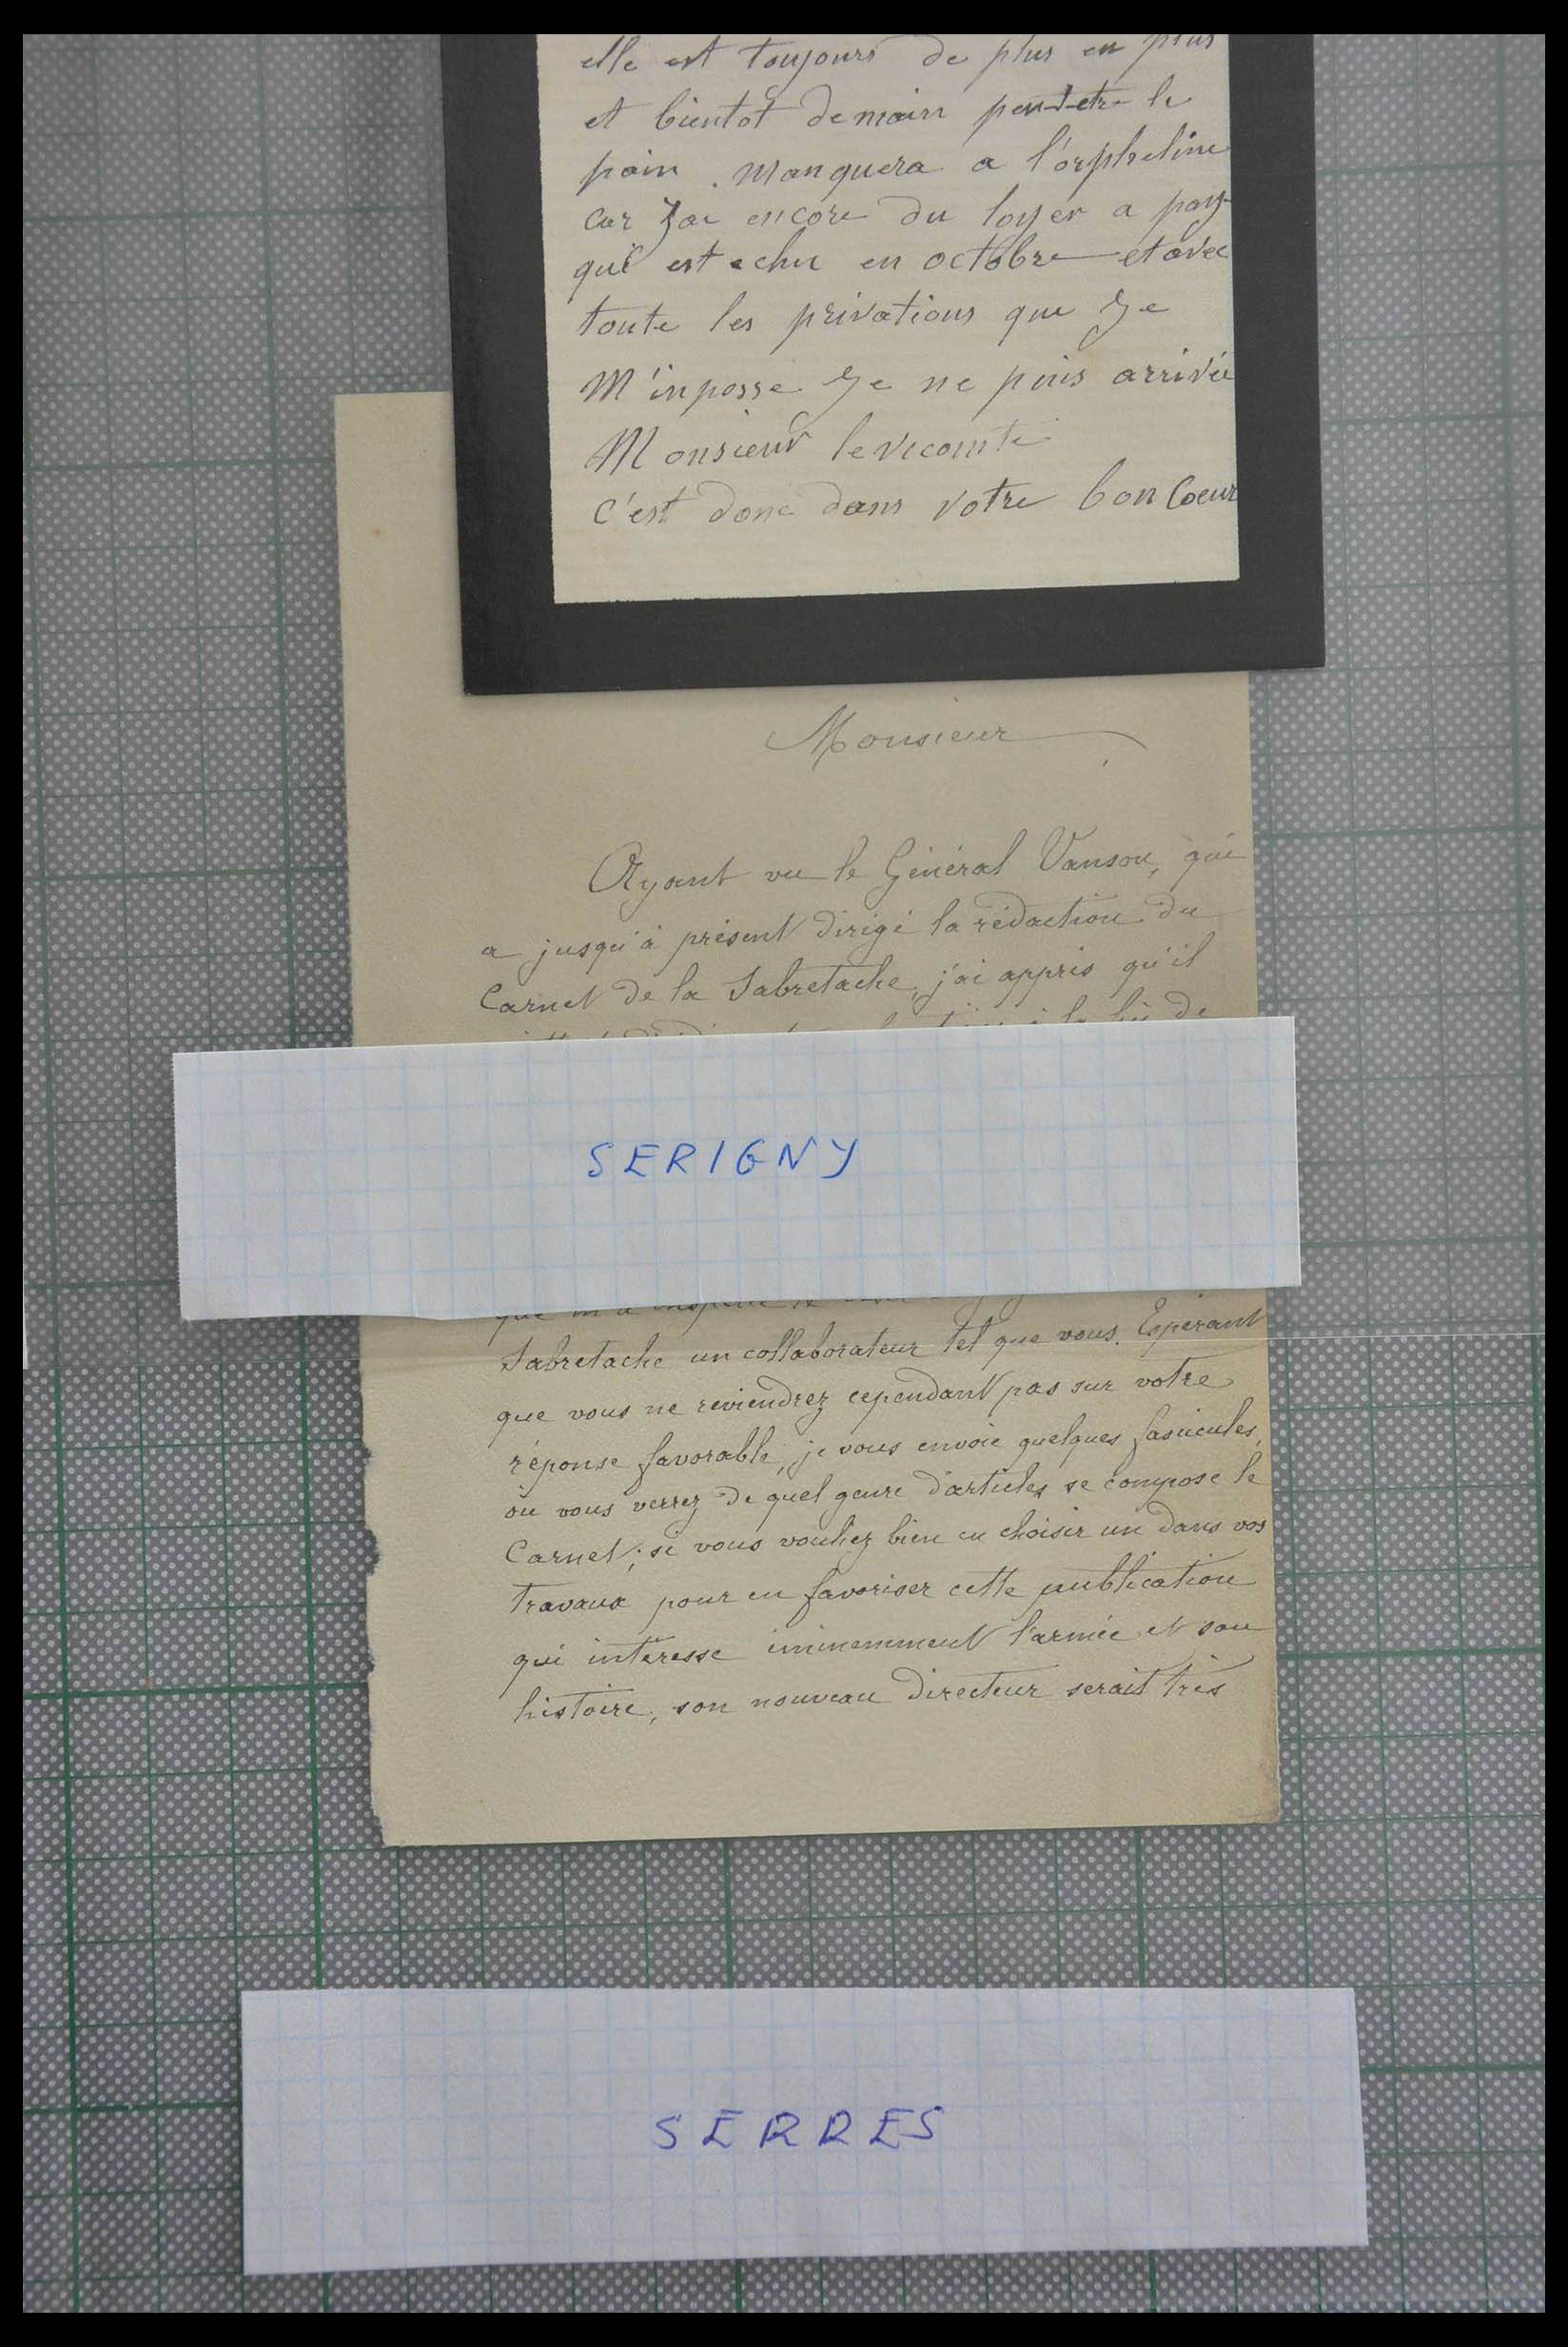 elle est toujours de plus en plus
et bientot demain peut-etre le
pain . manquera a l'orpheline
car Jai encore du loyer a pay
qui est echu en octobre et avec
toute les privations que Je
M'inposse Je ne puis arrivée
Monsieur le vicomte
C'est donc dans votre bon Coeur
Monsieur,
Ayant vu le Général Vanson, qui
a jusqu'à présent dirigé la rédaction du
Carnet de la Sabretache, j'ai appris qu'il
à la fin de
SERIGNY
que m'a inspiré le
Sabretache un collaborateur tel que vous. Espérant
que vous ne reviendrez cependant pas sur votre
réponse favorable, je vous envoie quelques fascicules,
où vous verrez de quel genre d'articles se compose le
Carnet; si vous vouliez bien en choisir un dans vos
travaux pour en favoriser cette publication
qui intéresse éminemment l'armée et son
histoire, son nouveau directeur serait très
SERRES